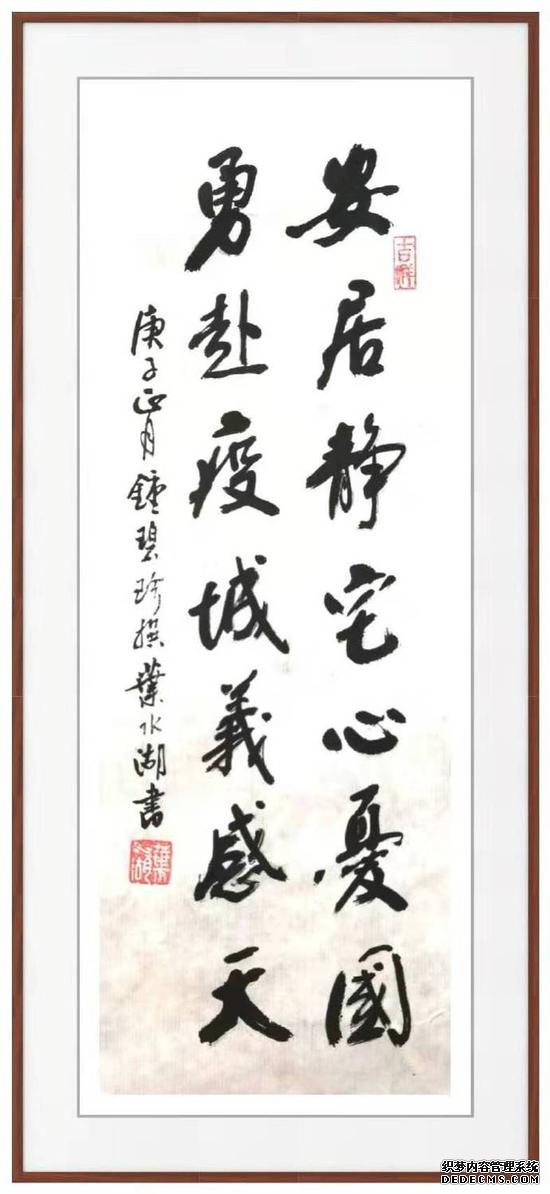 安居静宅心憂國
勇赴疫城義感天
庚子正月鍾碧珍撰葉水湖書
吉祥
葉水湖
织梦内容管理系统
DEDECMS.COM